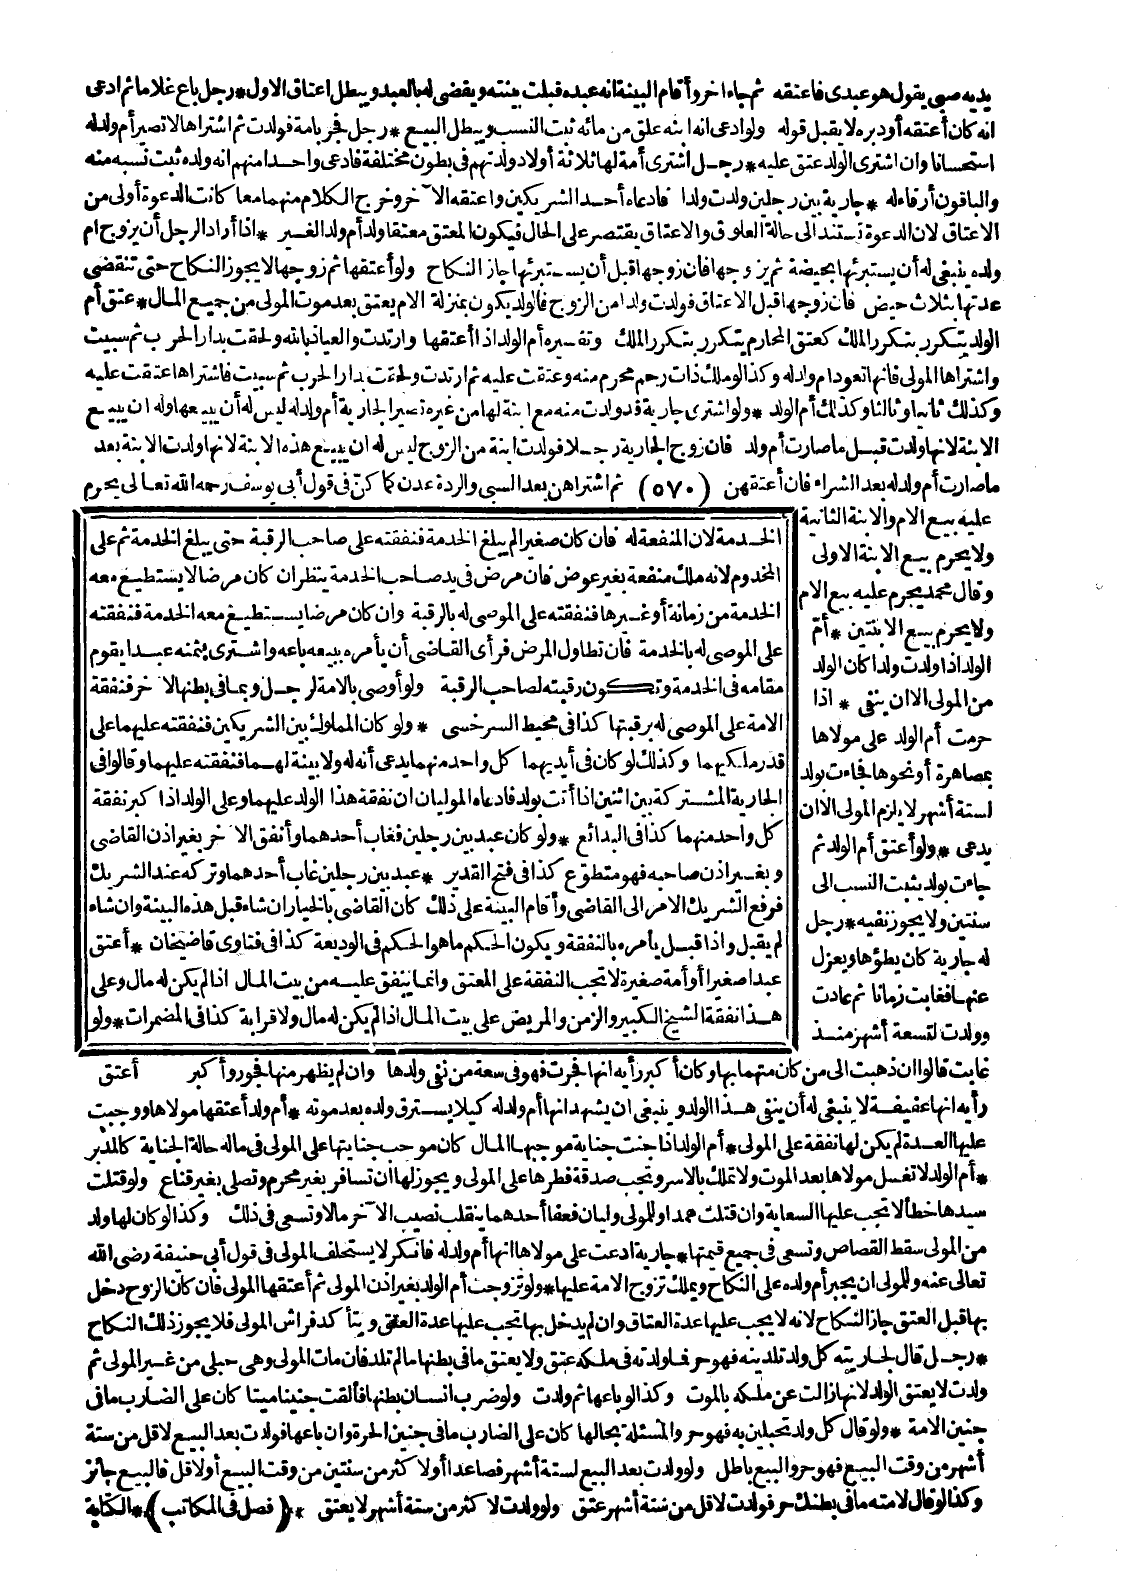 يديه صبي يقول هو عبدى فاعتقه ثم جاء اخر وأقام البينة انه عبده قبلت بينته ويقضى له بالعبد ويبطل اعتاق الاول * رجل باع غلاما ثم ادعى
انه كان أعتقه أو دبره لا يقبل قوله ولو ادعى انه ابنه علق من مائه ثبت النسب ويبطل البيع * رجل فجر بامة فولدت ثم اشتراها لا تصير أم ولد له
استحسانا وان اشترى الولد عتق عليه * رجل اشترى أمة لها ثلاثة أولاد ولدتهم فى بطون مختلفة فادعى واحدا منهم انه ولده ثبت نسبه منه
والباقون أرقاء له * جارية بين رجلين ولدت ولدا فادعاه أحد الشريكين واعتقه الآخر وخرج الكلام منهما معا كانت الدعوة أولى من
الاعتاق لان الدعوة تستند الى حالة العلوق والاعتاق يقتصر على الحال فيكون المعتق معتقا ولد أم ولد الغير * اذا أراد الرجل أن يزوج ام
ولده ينبغى له أن يستبرئها بحيضة ثم يزوجها فان زوجها قبل أن يستبرئها جاز النكاح ولو أعتقها ثم زوجها لا يجوز النكاح حتى تنقضى
عدتها بثلاث حيض فان زوجها قبل الاعتاق فولدت ولدا من الزوج فالولد يكون بمنزلة الام يعتق بعد موت المولى من جميع المال * عتق أم
الولد يتكرر بتكرر الملك كعتق المحارم يتكرر بتكرر الملك وتفسيره أم الولد اذا أعتقها وارتدت والعياذ بالله ولحقت بدار الحرب ثم سبيت
واشتراها المولى فانها تعود ام ولد له وكذا لو ملك ذات رحم محرم منه وعتقت عليه ثم ارتدت ولحقت بدار الحرب ثم سبيت فاشتراها عتقت عليه
وكذلك ثانيا وثالثا وكذلك أم الولد * ولو اشترى جارية قد ولدت منه مع ابنة لها من غيره تصير الجارية أم ولد له ليس له أن يبيعها وله ان يبيع
الابنة لانها ولدت قبل ما صارت أم ولد فان زوج الجارية رجلا فولدت ابنة من الزوج ليس له ان يبيع هذه الابنة لانها ولدت الابنة بعد
ما صارت أم ولد له بعد الشراء فان أعتقهن (٥٧٠) ثم اشتراهن بعد السبى والردة عدن كما كن فى قول أبى يوسف رحمه الله تعالى يحرم
عليه بيع الام والابنة الثانية
ولا يحرم بيع الابنة الاولى
وقال محمد يحرم عليه بيع الام
ولا يحرم بيع الابنتين * أم
الولد اذا ولدت ولدا كان الولد
من المولى الا ان ينفى * اذا
حرمت أم الولد على مولاها
بمصاهرة أو نحوها فجاءت بولد
لستة أشهر لا يلزم المولى الا ان
يدعى * ولو أعتق أم الولد ثم
جاءت بولد يثبت النسب الى
سنتين ولا يجوز نفيه * رجل
له جارية كان يطؤها ويعزل
عنها فغابت زمانا ثم عادت
وولدت لتسعة أشهر منذ
الخدمة لان المنفعة له فان كان صغيرا لم يبلغ الخدمة فنفقته على صاحب الرقبة حتى يبلغ الخدمة ثم على
المخدوم لانه ملك منفعة بغير عوض فان مرض فى يد صاحب الخدمة ينظر ان كان مرضا لا يستطيع معه
الخدمة من زمانة أو غيرها فنفقته على الموصى له بالرقبة وان كان مرضا يستطيع معه الخدمة فنفقته
على الموصى له بالخدمة فان تطاول المرض فرأى القاضى أن يأمره ببيعه باعه واشترى بثمنه عبدا يقوم
مقامه فى الخدمة وتكون رقبته لصاحب الرقبة ولو أوصى بالامة لرجل وبما فى بطنها لآخر فنفقة
الامة على الموصى له برقبتها كذا فى محيط السرخسى * ولو كان المملوك بين الشريكين فنفقته عليهما على
قدر ملكيهما وكذلك لو كان فى أيديهما كل واحد منهما يدعى أنه له ولا بينة لهما فنفقته عليهما وقالوا فى
الجارية المشتركة بين اثنين اذا أتت بولد فادعاه الموليان ان نفقة هذا الولد عليهما وعلى الولد اذا كبر نفقة
كل واحد منهما كذا فى البدائع * ولو كان عبد بين رجلين فغاب أحدهما وأنفق الآخر بغير اذن القاضى
وبغير اذن صاحبه فهو متطوع كذا فى فتح القدير * عبد بين رجلين غاب أحدهما وتركه عند الشريك
فرفع الشريك الامر الى القاضى وأقام البينة على ذلك كان القاضى بالخيار ان شاء قبل هذه البينة وان شاء
لم يقبل واذا قبل يأمره بالنفقة ويكون الحكم ما هو الحكم فى الوديعة كذا فى فتاوى قاضيخان * أعتق
عبدا صغيرا أو أمة صغيرة لا تجب النفقة على المعتق وانما ينفق عليه من بيت المال اذا لم يكن له مال وعلى
هذا نفقة الشيخ الكبير والزمن والمريض على بيت المال اذا لم يكن له مال ولا قرابة كذا فى المضمرات * ولو
أعتق
غابت قالوا ان ذهبت الى من كان متهما بها وكان أكبر رأيه انها فجرت فهو فى سعة من نفى ولدها وان لم يظهر منها فجور وأكبر
رأيه انها عفيفة لا ينبغى له أن ينفى هذا الولد و ينبغى ان يشهد انها أم ولد له كيلا يسترق ولده بعد موته * أم ولد أعتقها مولاها ووجبت
عليها العدة لم يكن لها نفقة على المولى * أم الولد اذا جنت جناية موجبها المال كان موجب جنايتها على المولى فى ماله حالة الجناية كالمدبر
* أم الولد لا تغسل مولاها بعد الموت ولا تملك بالاسر وتجب صدقة فطرها على المولى ويجوز لها ان تسافر بغير محرم وتصلى بغير قناع ولو قتلت
سيدها خطأ لا تجب عليها السعاية وان قتلت عمدا وللمولى وليان فعفا أحدهما ينقلب نصيب الآخر مالا وتسعى فى ذلك وكذا لو كان لها ولد
من المولى سقط القصاص وتسعى فى جميع قيمتها * جارية ادعت على مولاها انها أم ولد له فانكر لا يستحلف المولى فى قول أبى حنيفة رضى الله
تعالى عنه وللمولى ان يجبر أم ولده على النكاح ويملك تزوج الامة عليها * ولو تزوجت أم الولد بغير اذن المولى ثم أعتقها المولى فان كان الزوج دخل
بها قبل العتق جاز النكاح لانه لا يجب عليها عدة العتاق وان لم يدخل بها تجب عليها عدة العتق ويتأكد فراش المولى فلا يجوز ذلك النكاح
* رجل قال لجاريته كل ولد تلدينه فهو حر فما ولدته فى ملكه عتق ولا يعتق ما فى بطنها ما لم تلد فان مات المولى وهى حبلى من غير المولى ثم
ولدت لا يعتق الولد لانها زالت عن ملكه بالموت وكذا لو باعها ثم ولدت ولو ضرب انسان بطنها فألقت جنينا ميتا كان على الضارب ما فى
جنين الامة * ولو قال كل ولد تحبلين به فهو حر والمسئلة بحالها كان على الضارب ما فى جنين الحرة وان باعها فولدت بعد البيع لاقل من ستة
أشهر من وقت البيع فهو حر والبيع باطل ولو ولدت بعد البيع لستة أشهر فصاعدا أو لا كثر من سنتين من وقت البيع أو لاقل فالبيع جائز
وكذا لو قال لامته ما فى بطنك حر فولدت لاقل من ستة أشهر عتق ولو ولدت لاكثر من ستة أشهر لا يعتق * (فصل فى المكاتب) * الكتابة